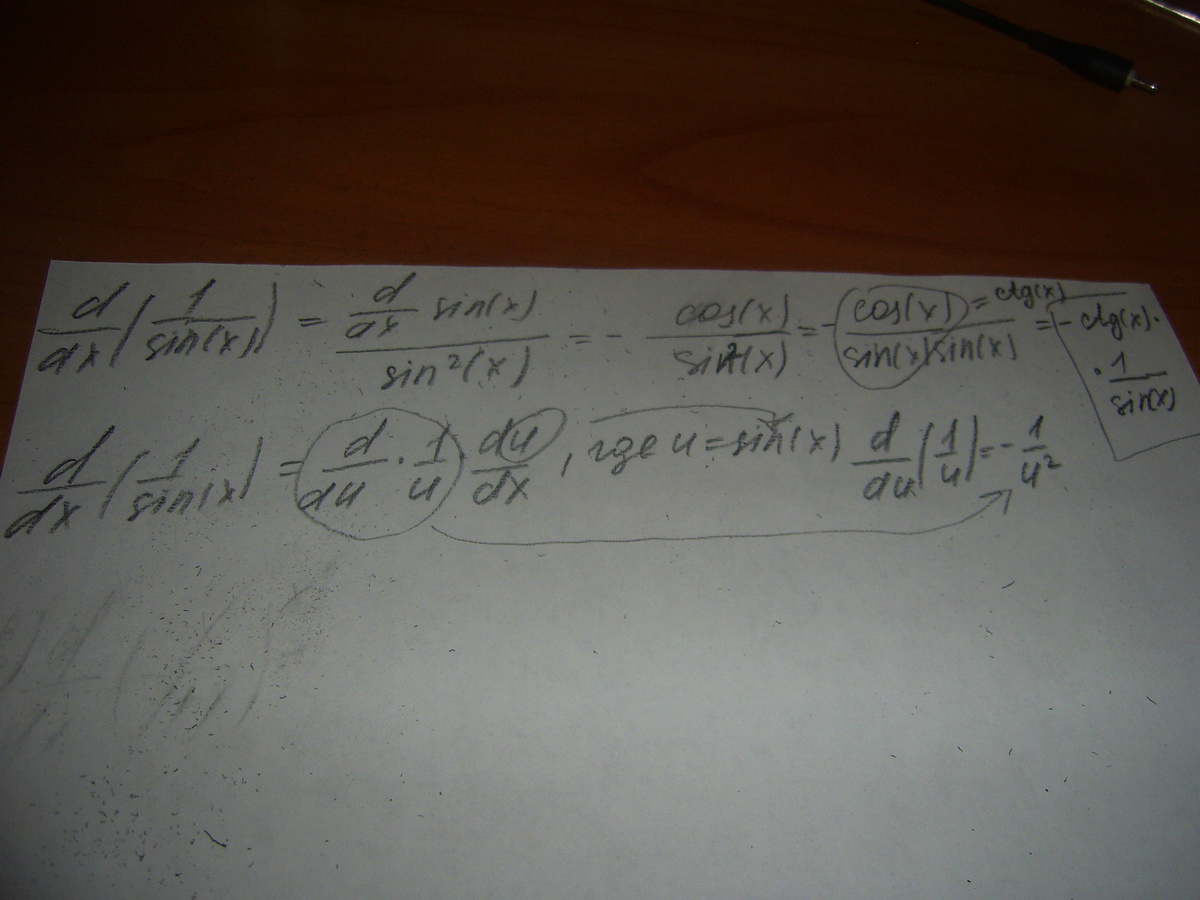 d/dx (1/sin(x)) = (d/dx sin(x))/(sin²(x)) = - cos(x)/sin²(x) = - cos(x)/(sin(x) sin(x)) = ctg(x) = - ctg(x) · · 1/sin(x)
d/dx (1/sin(x)) = d/du · 1/u · du/dx , где u = sin(x) d/du (1/u) = - 1/u²